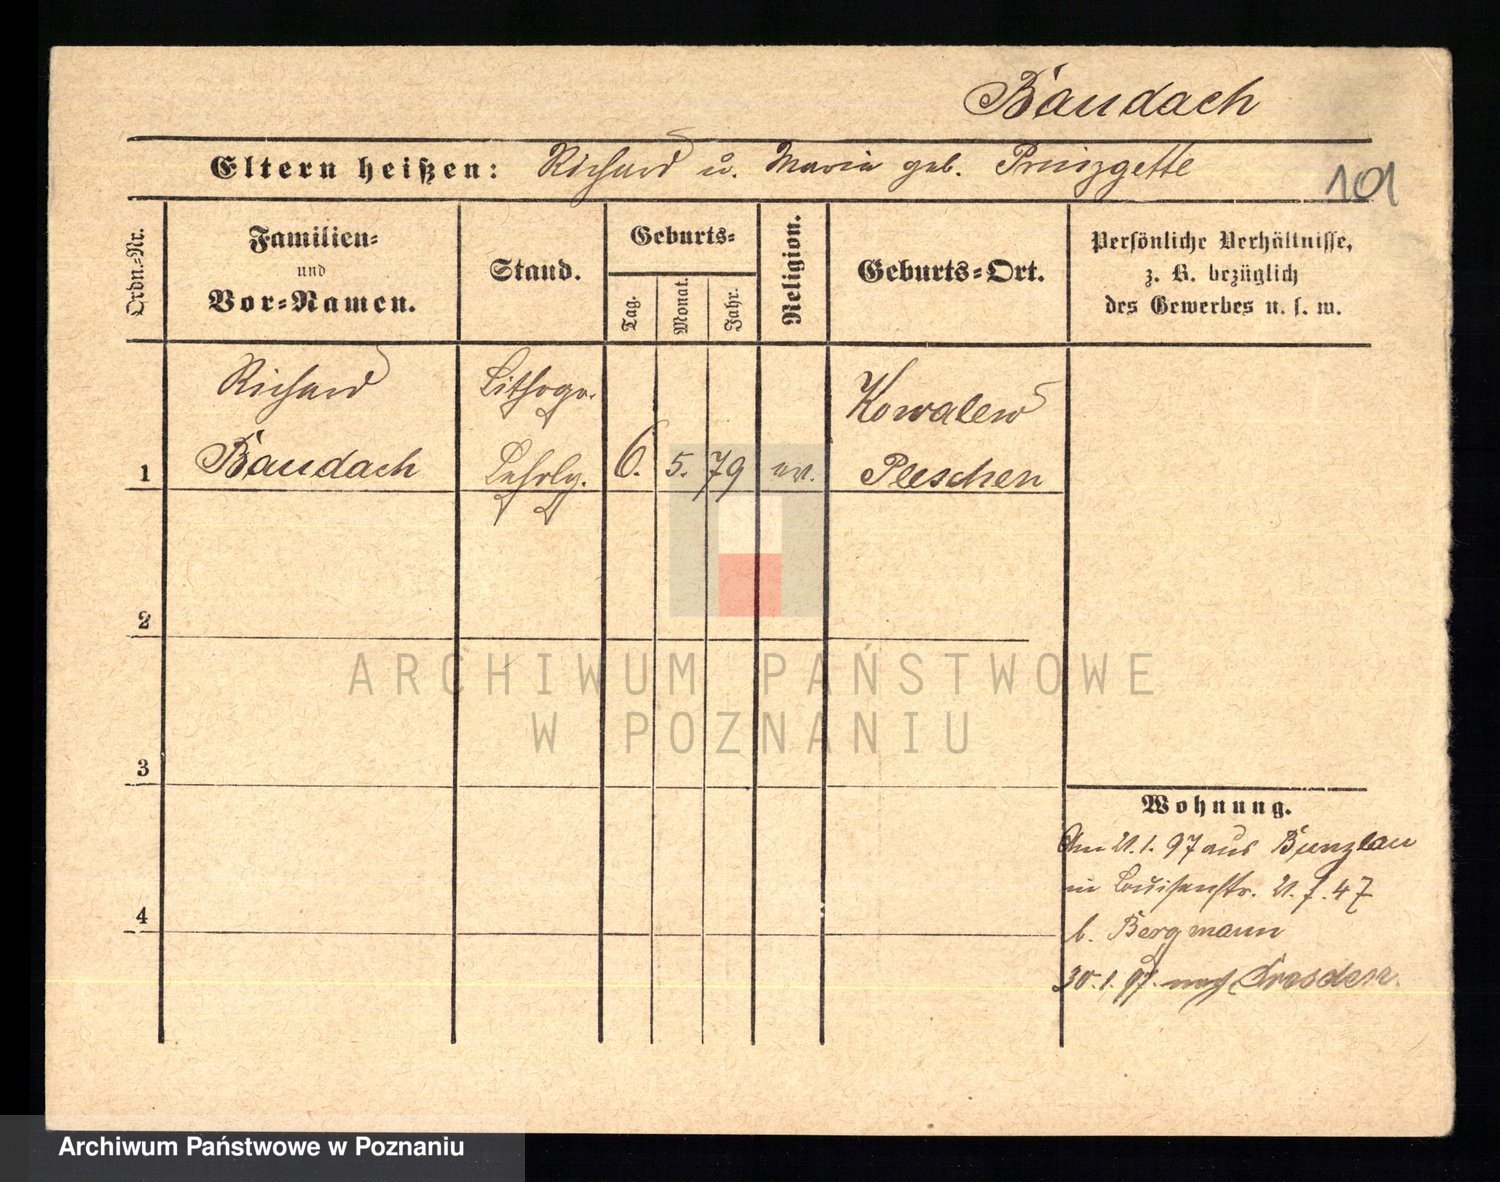 Baudach
Eltern heißen: Richard u. Maria geb. Prinzgette
101
Ordn.=Nr.
Familien=
und
Vor=Namen.
Stand.
Geburts=
Tag.
Monat.
Jahr.
Religion.
Geburts=Ort.
Persönliche Verhältnisse,
z. B. bezüglich
des Gewerbes u. s. w.
Richard Lithogr. Kowalew
1 Baudach Lehrlg. 6. 5. 79 ev. Pleschen
2
3
4
Wohnung.
Am 21.1.97 aus Bunzlau
in Louisenstr. 21. 47
b. Bergmann
30.1.97. nach Dresden.
ARCHIWUM PAŃSTWOWE
W POZNANIU
Archiwum Państwowe w Poznaniu